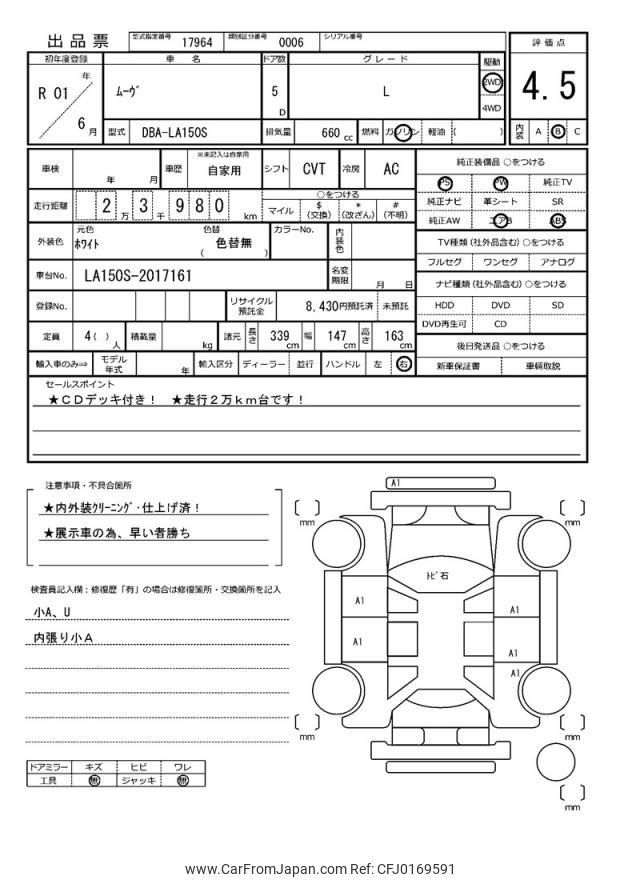 出品票 型式指定番号 17964 類別区分番号 0006 シリアル番号
初年度登録 車名 ドア数 グレード 駆動 評価点
R 01 年 6 月 ムーヴ 5 D L 2WD 4WD 4.5
型式 DBA-LA150S 排気量 660 cc 燃料 ガソリン 軽油 ( ) 内装 A B C
車検 年 月 車歴 ※未記入は自家用 自家用 シフト CVT 冷房 AC
走行距離 2 万 3 千 9 8 0 km ○をつける マイル $ (交換) * (改ざん) # (不明)
外装色 元色 ホワイト 色替 色替無 ( ) カラーNo. 内装色
車台No. LA150S-2017161 名変期限 月 日
登録No. リサイクル預託金 8,430円預託済 未預託
定員 4( ) 人 積載量 kg 諸元 長さ 339 cm 幅 147 cm 高さ 163 cm
輸入車のみ⇒ モデル年式 年 輸入区分 ディーラー 並行 ハンドル 左 右
純正装備品 ○をつける
PS PW 純正TV
純正ナビ 革シート SR
純正AW エアB ABS
TV種類 (社外品含む) ○をつける
フルセグ ワンセグ アナログ
ナビ種類 (社外品含む) ○をつける
HDD DVD SD
DVD再生可 CD
後日発送品 ○をつける
新車保証書 車輌取説
セールスポイント
★CDデッキ付き! ★走行2万km台です!
注意事項・不具合箇所
★内外装クリーニング・仕上げ済!
★展示車の為、早い者勝ち
検査員記入欄:修復歴「有」の場合は修復箇所・交換箇所を記入
小A、U
内張り小A
ドアミラー キズ ヒビ ワレ
工具 無 ジャッキ 無
A1
mm
mm
トビ石
A1
A1
A1
A1
A1
mm
mm
mm
www.CarFromJapan.com Ref: CFJ0169591